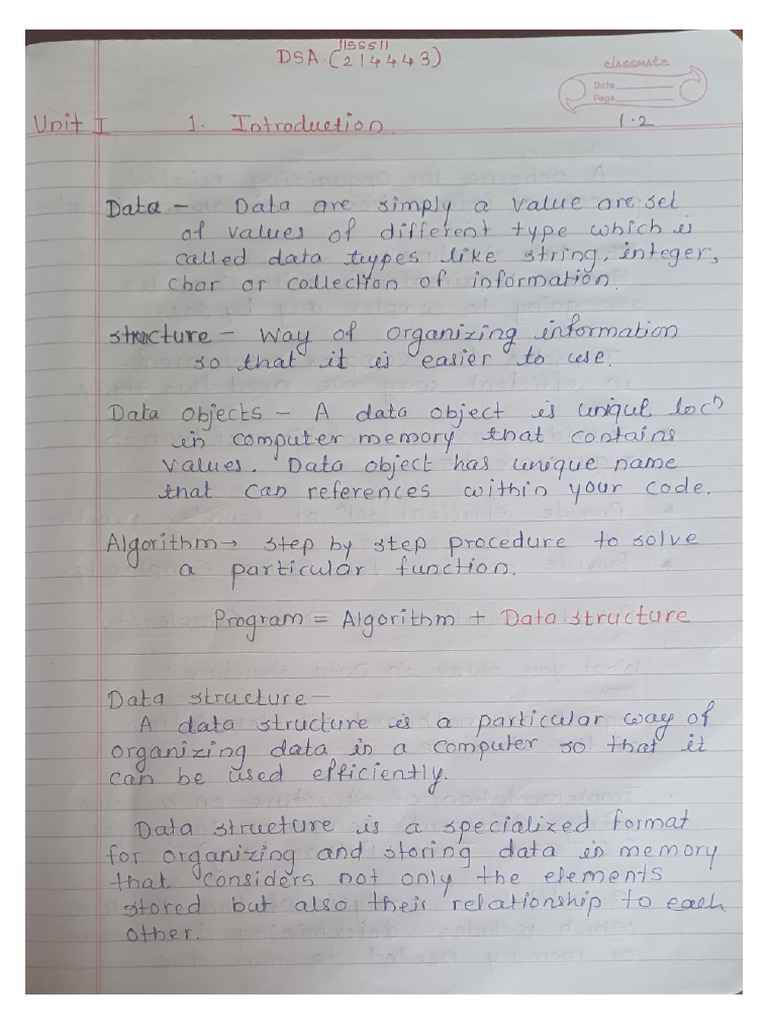 1155511
DSA. (214443)
classmate
Date
Page
1.2
Unit I 1. Introduction
Data - Data are simply a value are set
of values of different type which is
called data types like string, integer,
char or collection of information.
structure - Way of organizing information
so that it is easier to use.
Data Objects - A data object is unique locn
in computer memory that contains
values. Data object has unique name
that can references within your code.
Algorithm → step by step procedure to solve
a particular function.
Program = Algorithm + Data structure
Data structure -
A data structure is a particular way of
organizing data in a computer so that it
can be used efficiently.
Data structure is a specialized format
for organizing and storing data in memory
that considers not only the elements
stored but also their relationship to each
other.